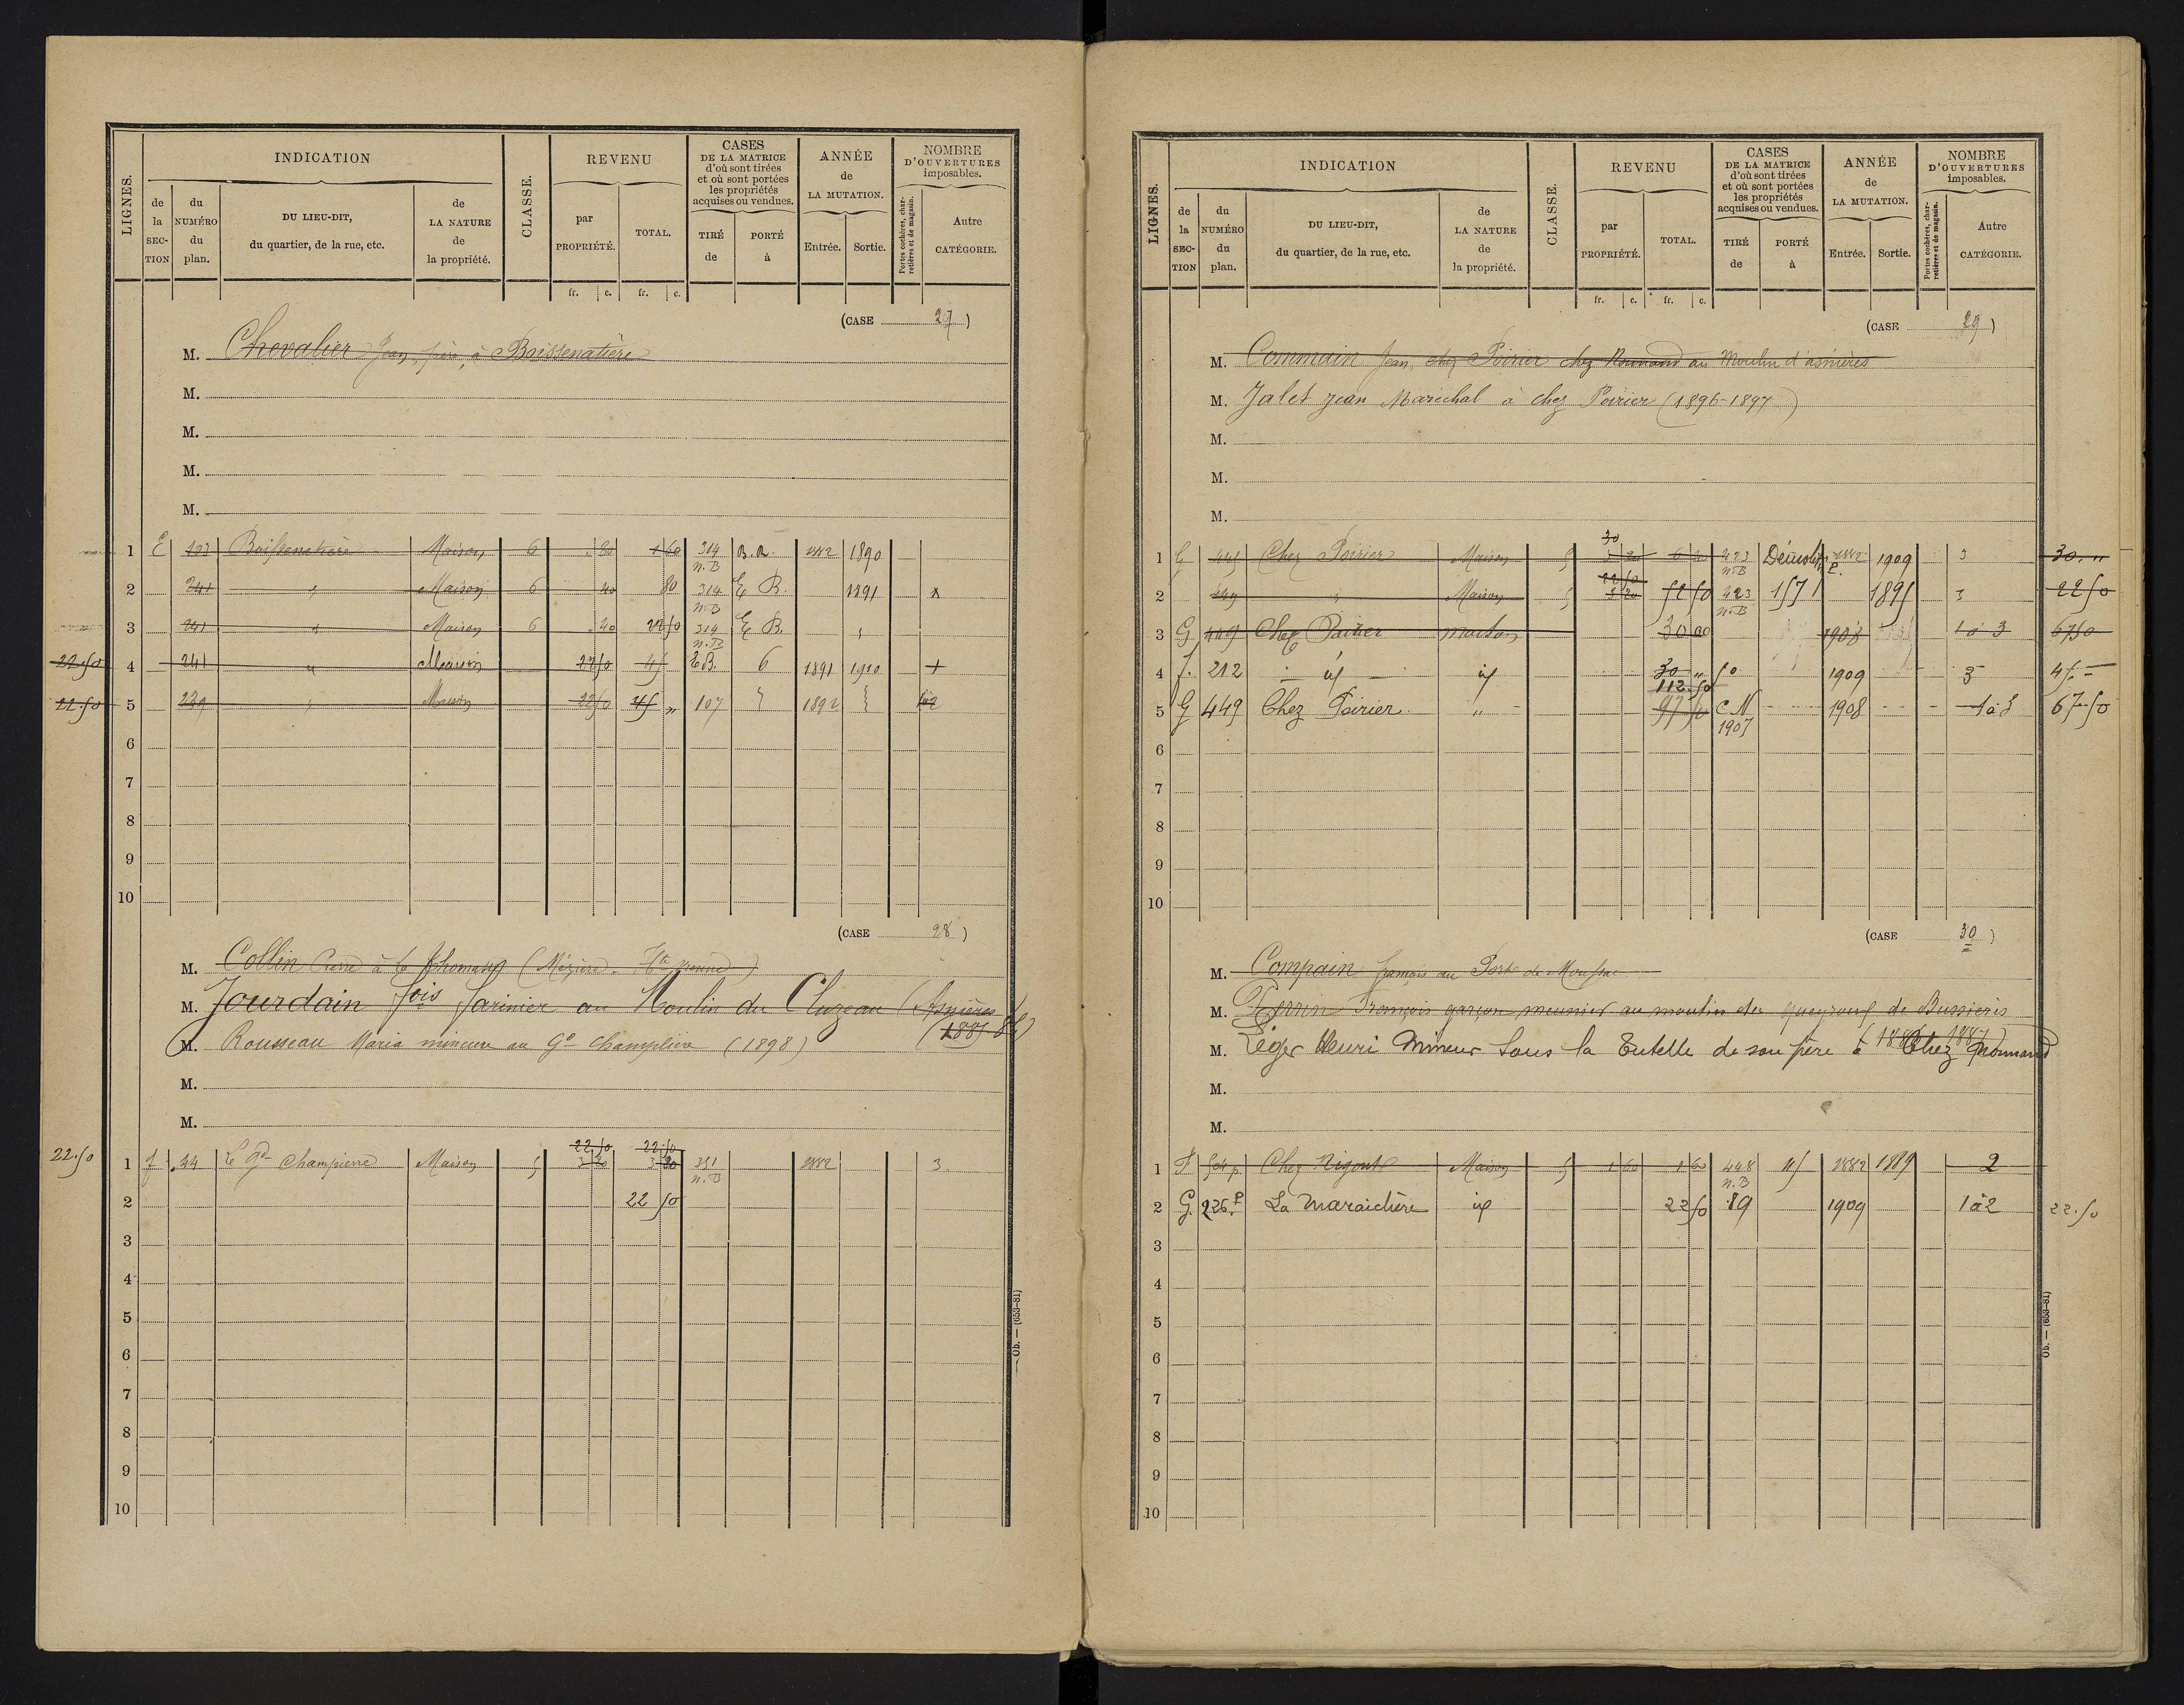 LIGNES.
INDICATION
de la SECTION
du NUMÉRO du plan.
DU LIEU-DIT, du quartier, de la rue, etc.
de LA NATURE de la propriété.
CLASSE.
REVENU
par PROPRIÉTÉ.
TOTAL.
fr. c. fr. c.
CASES DE LA MATRICE d'où sont tirées et où sont portées les propriétés acquises ou vendues.
TIRÉ de
PORTÉ à
ANNÉE de LA MUTATION.
Entrée. Sortie.
NOMBRE D'OUVERTURES imposables.
Portes cochères, charretières et de magasin.
Autre CATÉGORIE.
(CASE 27)
M. Chevalier Jean, père, à Boissenatière
M.
M.
M.
M.
1 E 103 Boissenatière Maison 6 80 1 60 314 n.B 1882 1890
2 241 " Maison 6 40 80 314 n.B E B. 1891
3 241 " Maison 6 40 22 50 314 n.B E B. "
22.50 4 241 " Maison 22 50 45 E B. 6 1891 1910
22.50 5 239 " Maison 22 50 45 " 107 1892
6
7
8
9
10
(CASE 28)
M. Collin Pierre à (Mézière Hte Vienne)
M. Jourdain fois farinier au Moulin du Cluzeau (Asnières
M. Rousseau Maria mineure au Gd Champierre (1898)
M.
M.
22.50 22.50
22.50 1 44 Le Gd Champierre Maison 5 3 20 3 20 351 n.B 1882 3.
2 22 50
3
4
5
6
7
8
9
10
Ob. — (653-81)
LIGNES.
INDICATION
de la SECTION
du NUMÉRO du plan.
DU LIEU-DIT, du quartier, de la rue, etc.
de LA NATURE de la propriété.
CLASSE.
REVENU
par PROPRIÉTÉ.
TOTAL.
fr. c. fr. c.
CASES DE LA MATRICE d'où sont tirées et où sont portées les propriétés acquises ou vendues.
TIRÉ de
PORTÉ à
ANNÉE de LA MUTATION.
Entrée. Sortie.
NOMBRE D'OUVERTURES imposables.
Portes cochères, charretières et de magasin.
Autre CATÉGORIE.
(CASE 29)
M. Commain Jean, chez Poirier chez Normand au Moulin d'asnières
M. Jalet Jean Maréchal à chez Poirier (1896-1897)
M.
M.
M.
30
1 G Chez Poirier Maison 5 3 20 423 n.B Démolit. 1882 1909 3 30. "
22 50
2 449 " Maison 5 3 20 52 50 423 n.B 157 1895 3 22 50
3 G 449 Chez Poirier maison 30 00 1908 1 à 3 67 50
4 f. 212 id id 30 " 50 1909 3 45. —
112.50
5 G 449 Chez Poirier " 97 50 C N 1907 1908 1 à 3 67.50
6
7
8
9
10
(CASE 30)
M. Compain françois au Port de Moussac
M. Perrin François garçon meunier au moulin des de Bussières
M. Léger Henri Mineur sous la Tutelle de son père à Chez Normand
M.
M.
1 F 504 p. Chez Rigout Maison 5 1 60 1 60 448 n.B 1882 1889 2
2 G. 226 P La Maraichère id 22 50 89 1909 1 à 2 22.50
3
4
5
6
7
8
9
10
Ob. — (653-81)